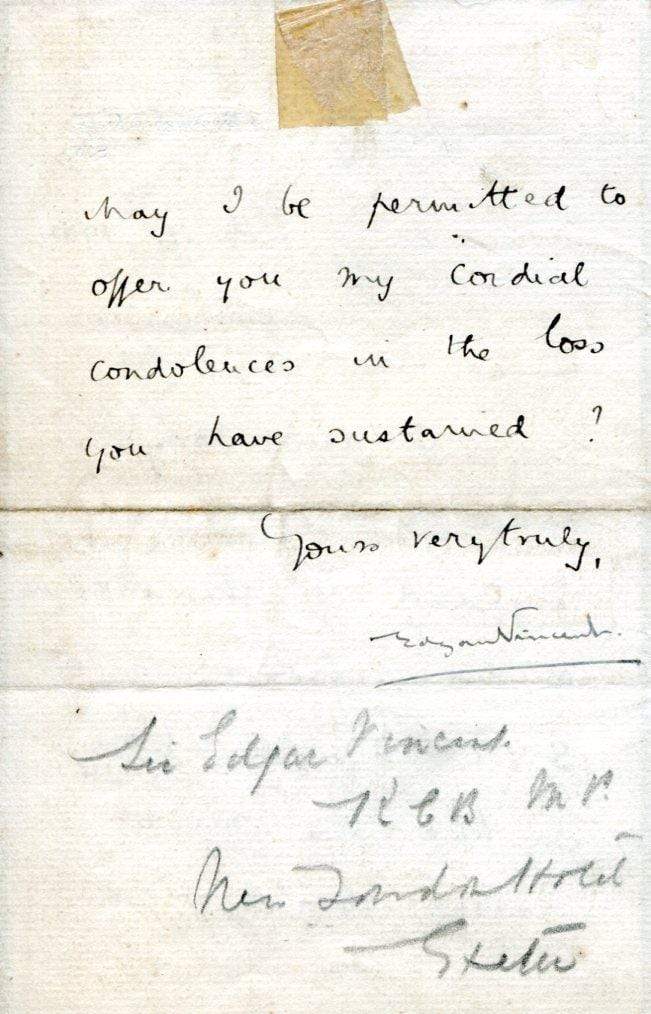 May I be permitted to
offer you my cordial
condolences in the loss
you have sustained ?
Yours very truly,
Edgar Vincent.
Sir Edgar Vincent.
K C B M P.
New London Hotel
Exeter